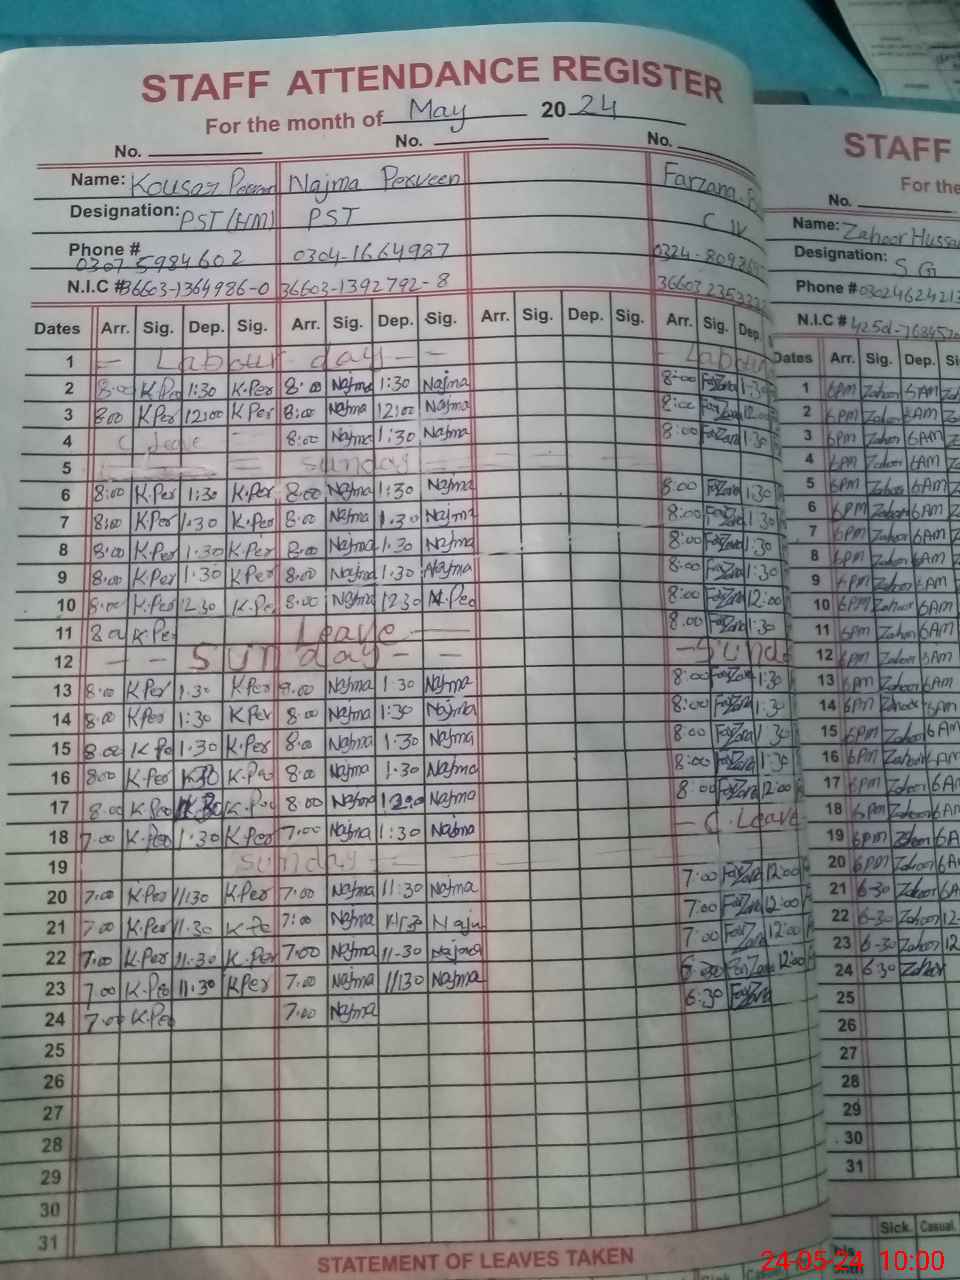 STAFF ATTENDANCE REGISTER
For the month of May 2024
No. No. No.
Name: Kousar Najma Perveen Farzana
Designation: PST (HM) PST C W
Phone # 0307 5984602 0304-1664987
N.I.C # 36603-1364986-0 36603-1392792-8
Dates Arr. Sig. Dep. Sig. Arr. Sig. Dep. Sig. Arr. Sig. Dep. Sig. Arr. Sig. Dep.
1 - Labour day - - - Labour
2 8:00 K Per 1:30 K.Per 8:00 Najma 1:30 Najma 8:00 Farzana 1:30
3 8:00 K.Per 12:00 K.Per 8:00 Najma 12:00 Najma 8:00 Farzana 12:00
4 C leave 8:00 Najma 1:30 Najma 8:00 Farzana 1:30
5 sunday
6 8:00 K.Per 1:30 K.Per 8:00 Najma 1:30 Najma 8:00 Farzana 1:30
7 8:00 K.Per 1.30 K.Per 8.00 Najma 1.30 Najma 8:00 Farzana 1:30
8 8:00 K.Per 1.30 K.Per 8:00 Najma 1.30 Najma 8:00 Farzana 1:30
9 8:00 K.Per 1.30 K.Per 8.00 Najma 1.30 Najma 8:00 Farzana 1:30
10 8:00 K.Per 12.30 K.Pe 8.00 Najma 12.30 N.Per 8:00 Farzana 12:00
11 8.00 K.Per Leave 8.00 Farzana 1:30
12 - - Sunday - - - Sunda
13 8.00 K Per 1.30 K Per 8.00 Najma 1.30 Najma 8:00 Farzana 1:30
14 8.00 K Per 1:30 K Per 8.00 Najma 1:30 Najma 8:00 Farzana 1:30
15 8.00 K Pe 1.30 K.Per 8.00 Najma 1.30 Najma 8:00 Farzana 1:30
16 8:00 K.Per 1.30 K.Per 8.00 Najma 1.30 Najma 8:00 Farzana 1:30
17 8.00 K.Per K.Per 8.00 Najma Najma 8:00 Farzana 12:00
18 7.00 K.Per 1.30 K.Per 7.00 Najma 1:30 Najma - C. Leave
19 sunday
20 7.00 K.Per 11:30 K.Per 7:00 Najma 11:30 Najma 7:00 Farzana 12:00
21 7.00 K.Per 11.30 K.Pe 7:00 Najma 11:30 Najm 7:00 Farzana 12:00
22 7.00 K.Per 11.30 K.Per 7.00 Najma 11-30 Najma 7:00 Farzana 12:00
23 7.00 K.Per 11.30 K Per 7.00 Najma 11:30 Najma 6:30 Farzana 12:00
24 7.00 K.Per 7.00 Najma 6:30 Farzana
25
26
27
28
29
30
31
STATEMENT OF LEAVES TAKEN
STAFF
For the
No.
Name: Zahoor Hussa
Designation: S G
Phone # 0302462421
N.I.C #
Dates Arr. Sig. Dep. S
1 6PM Zahoor 6AM
2 6PM Zahoor 6AM
3 6PM Zahoor 6AM
4 6PM Zahoor 6AM
5 6PM Zahoor 6AM
6 6PM Zahoor 6AM
7 6PM Zahoor 6AM
8 6PM Zahoor 6AM
9 6PM Zahoor 6AM
10 6PM Zahoor 6AM
11 6PM Zahoor 6AM
12 6PM Zahoor 6AM
13 6PM Zahoor 6AM
14 6PM Zahoor 6AM
15 6PM Zahoor 6AM
16 6PM Zahoor 6AM
17 6PM Zahoor 6AM
18 6PM Zahoor 6AM
19 6PM Zahoor 6A
20 6PM Zahoor 6A
21 6-30 Zahoor 6A
22 6-30 Zahoor 12
23 6-30 Zahoor 12
24 6:30 Zahoor
25
26
27
28
29
30
31
Sick. Casual.
24-05-24 10:00